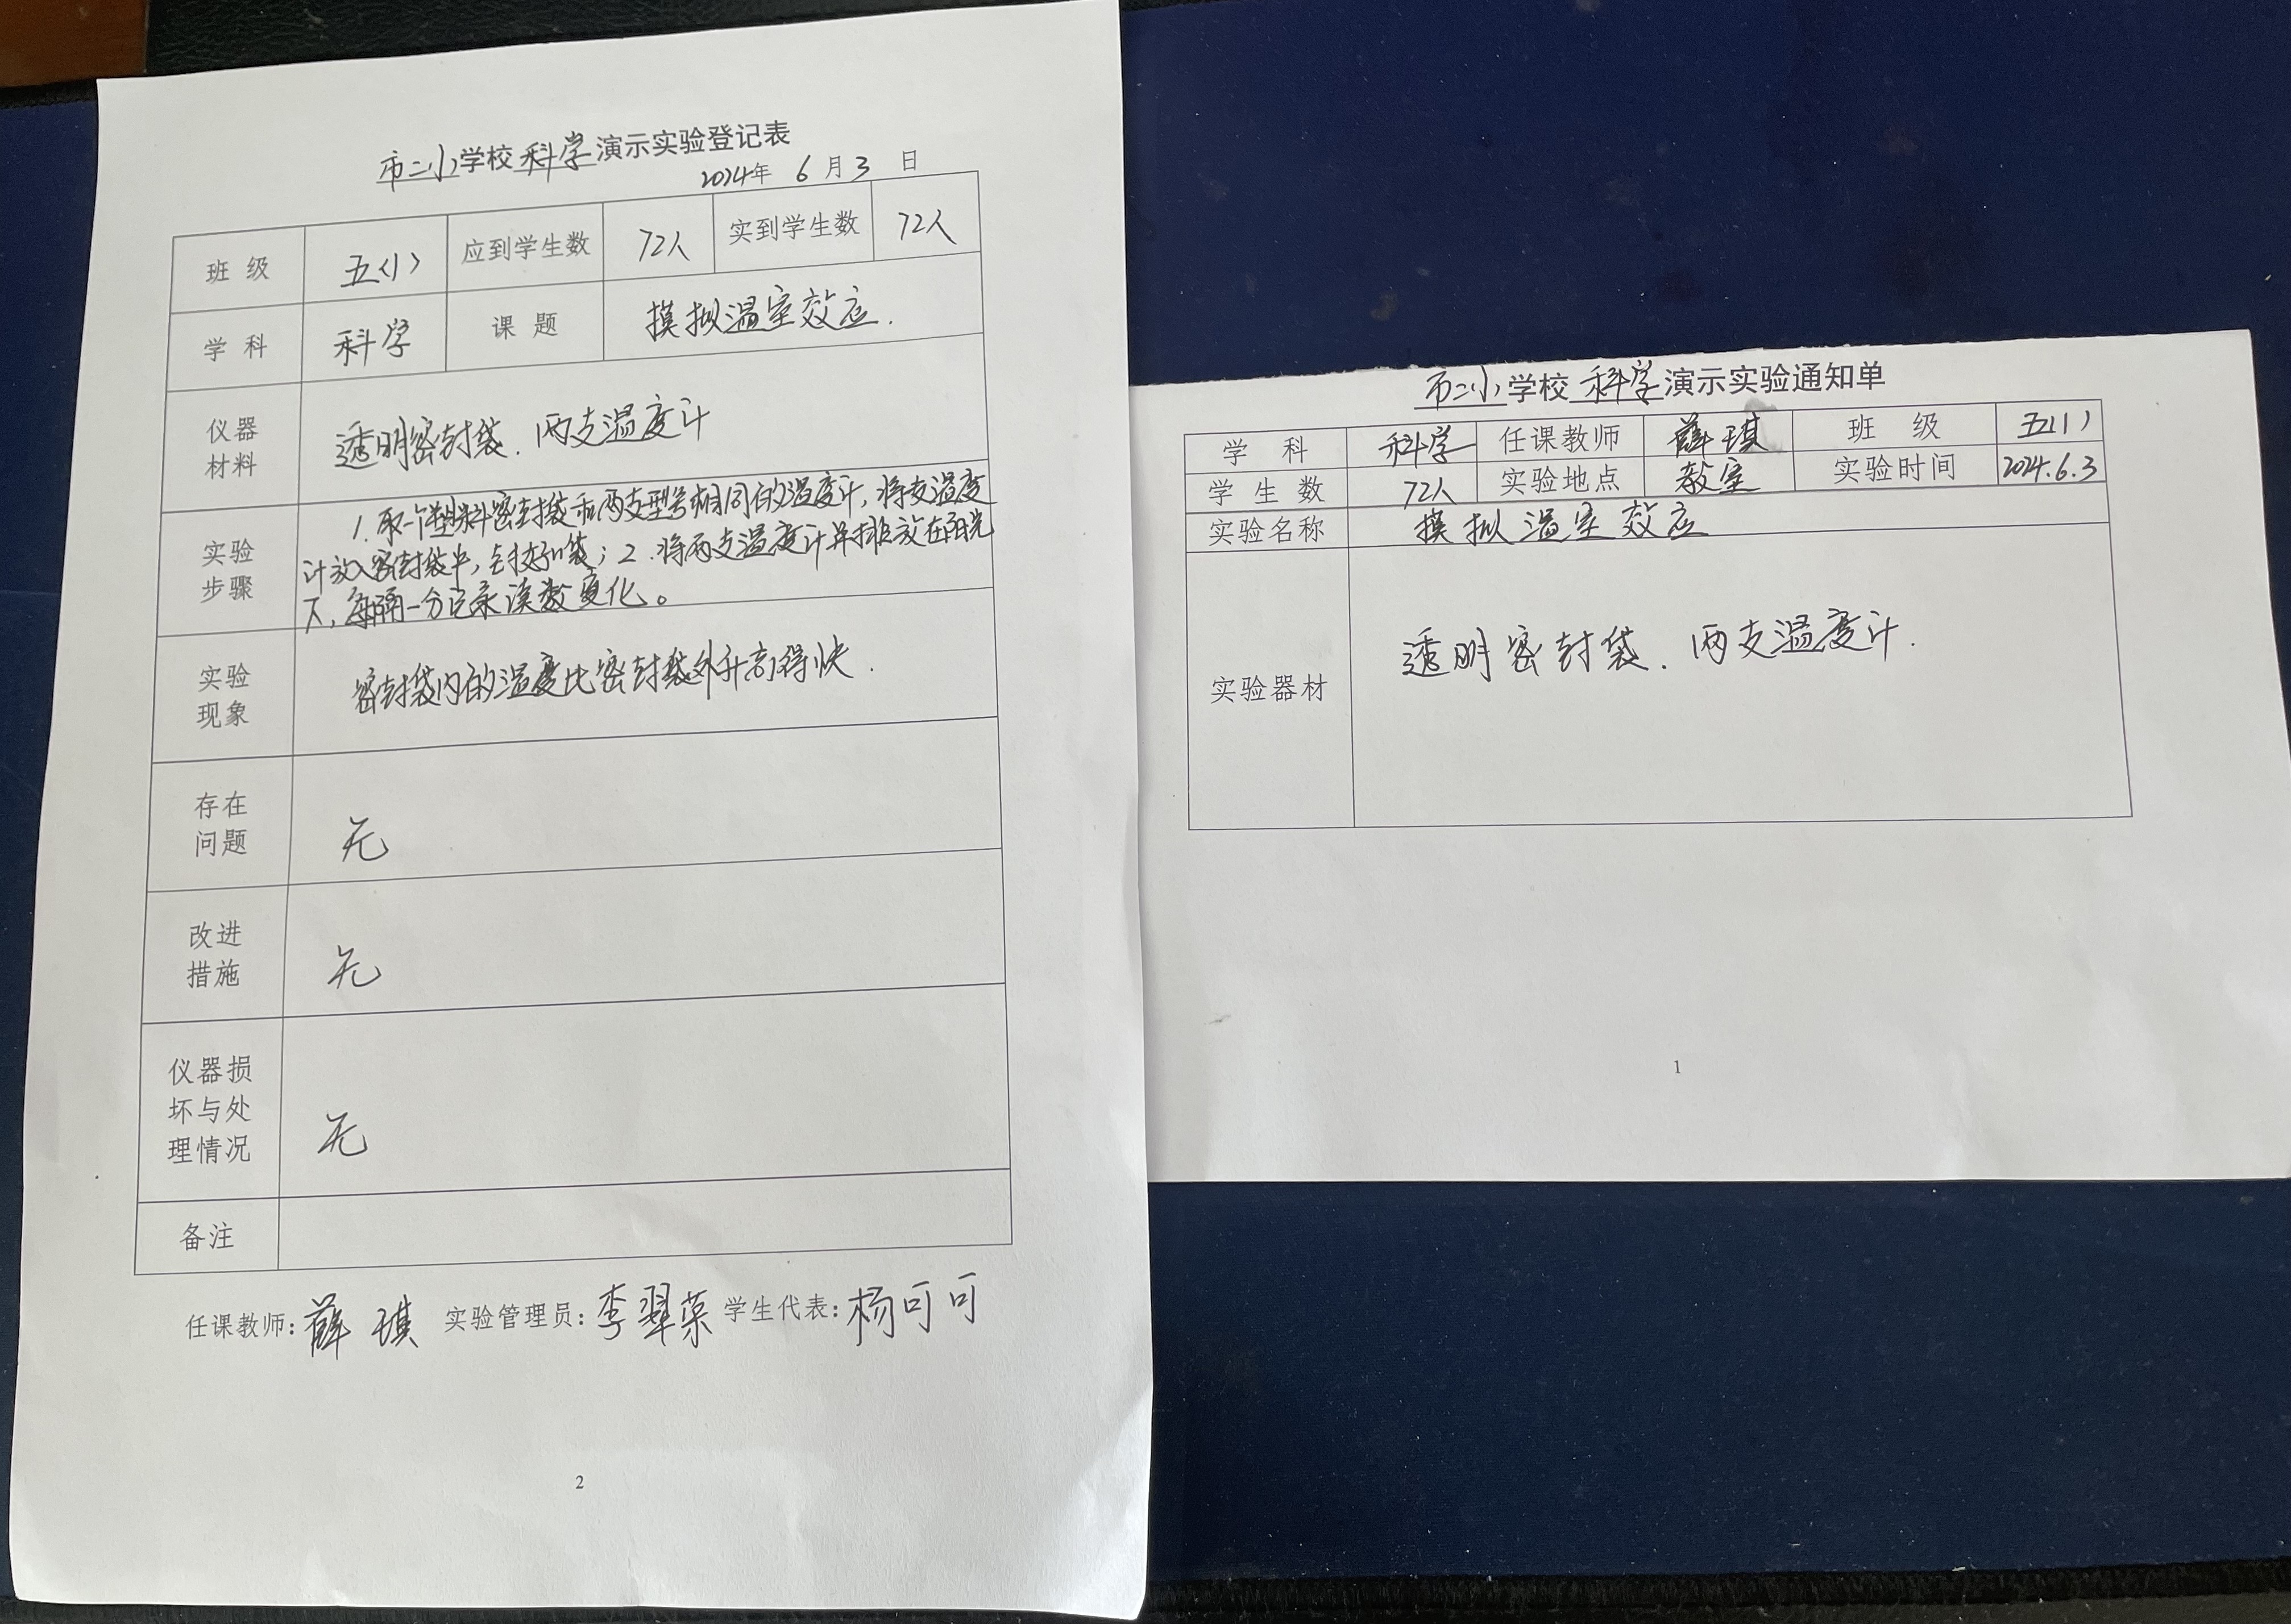 市二小学校科学演示实验登记表
2024年 6月3日
班级 五(1) 应到学生数 72人 实到学生数 72人
学科 科学 课题 摸拟温室效应.
仪器材料 透明密封袋.两支温度计
实验步骤 1.取一个塑料密封袋和两支型号相同的温度计,将支温度
计放入密封袋中,封好袋;2.将两支温度计并排放在阳光
下,每隔一分记录读数变化。
实验现象 密封袋内的温度比密封袋外升高得快.
存在问题 无
改进措施 无
仪器损坏与处理情况 无
备注
任课教师:薛琪 实验管理员:李翠荣 学生代表:杨可可
2
市二小学校科学演示实验通知单
学科 科学 任课教师 薛琪 班级 五(1)
学生数 72人 实验地点 教室 实验时间 2024.6.3
实验名称 摸拟温室效应
实验器材 透明密封袋.两支温度计.
1